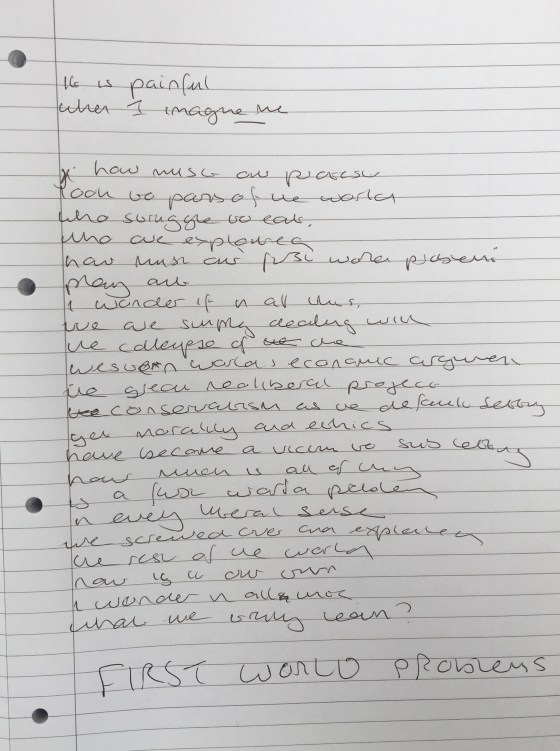 It is painful
when I imagne me
how must our protest
look to parts of the world
who struggle to eat.
who are exploited
how must our first world problems
play out
I wonder if in all this,
we are simply dealing with
the collapse of the
western worlds economic argument
the great neoliberal project
conservatism as the default setting
yet morality and ethics
have become a victim to sub letting
how much is all of this
is a first world problem
in every literal sense
we screwed over and exploited
the rest of the world
now is it our own
I wonder in all
what we truly learn?
FIRST WORLD PROBLEMS